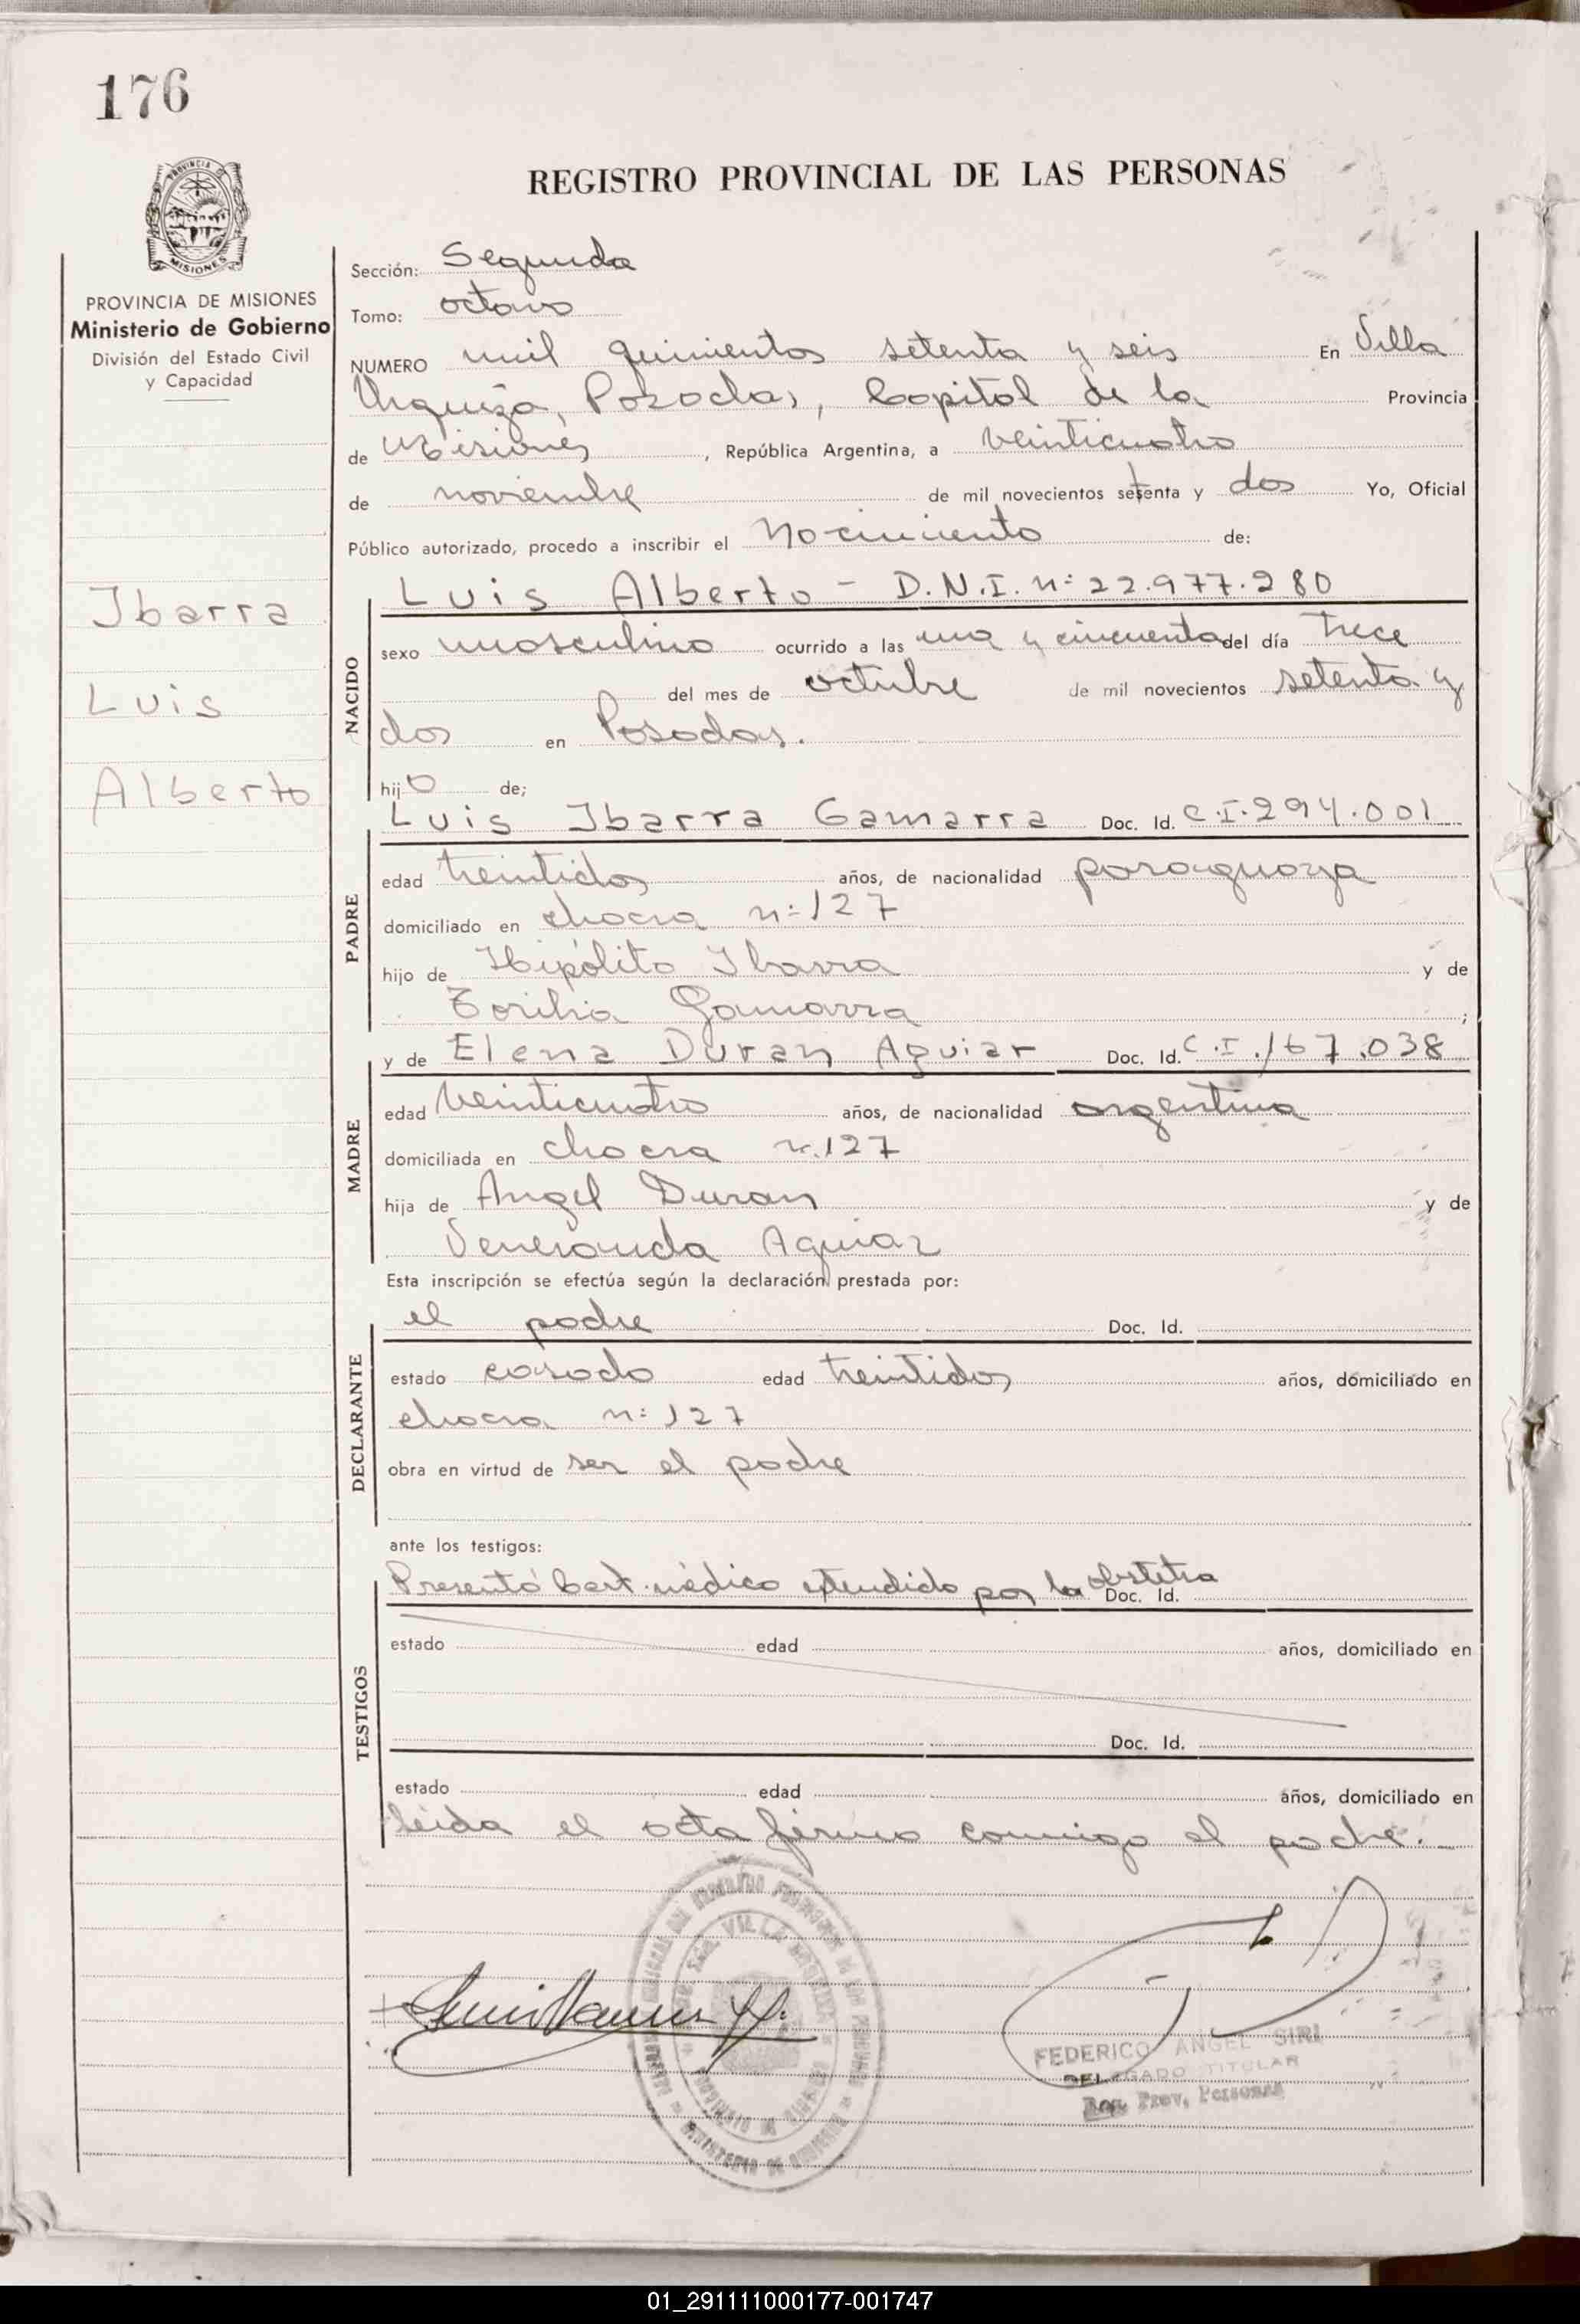 176
PROVINCIA
MISIONES
REGISTRO PROVINCIAL DE LAS PERSONAS
PROVINCIA DE MISIONES
Ministerio de Gobierno
División del Estado Civil
y Capacidad
Ibarra
Luis
Alberto
Sección: Segunda
Tomo: octavo
NUMERO mil quinientos setenta y seis En Villa
Urquiza, Posadas, Capital de la Provincia
de Misiones, República Argentina, a veinticuatro
de noviembre de mil novecientos setenta y dos Yo, Oficial
Público autorizado, procedo a inscribir el nacimiento de:
NACIDO
Luis Alberto - D.N.I. n: 22.977.280
sexo masculino ocurrido a las una y cincuenta del día trece
del mes de octubre de mil novecientos setenta y
dos en Posadas.
hijo de;
PADRE
Luis Ibarra Gamarra Doc. Id. C.I. 294.001
edad treintidos años, de nacionalidad paraguaya
domiciliado en chacra n: 127
hijo de Hipólito Ibarra y de
Gamarra;
MADRE
y de Elena Duran Aguiar Doc. Id. C.I. 167.038
edad veinticuatro años, de nacionalidad argentina
domiciliada en chacra n. 127
hija de Angel Duran y de
Veneranda Aguiar
Esta inscripción se efectúa según la declaración prestada por:
DECLARANTE
el padre Doc. Id.
estado casado edad treintidos años, domiciliado en
chacra n: 127
obra en virtud de ser el padre
ante los testigos:
TESTIGOS
Presentó Cert. médico extendido por la obstetra Doc. Id.
estado edad años, domiciliado en
Doc. Id.
estado edad años, domiciliado en
Leida el acta firma conmigo el padre.
VILLA
FEDERICO ANGEL SIRI
DELEGADO TITULAR
Reg. Prov. Personas
01_291111000177-001747